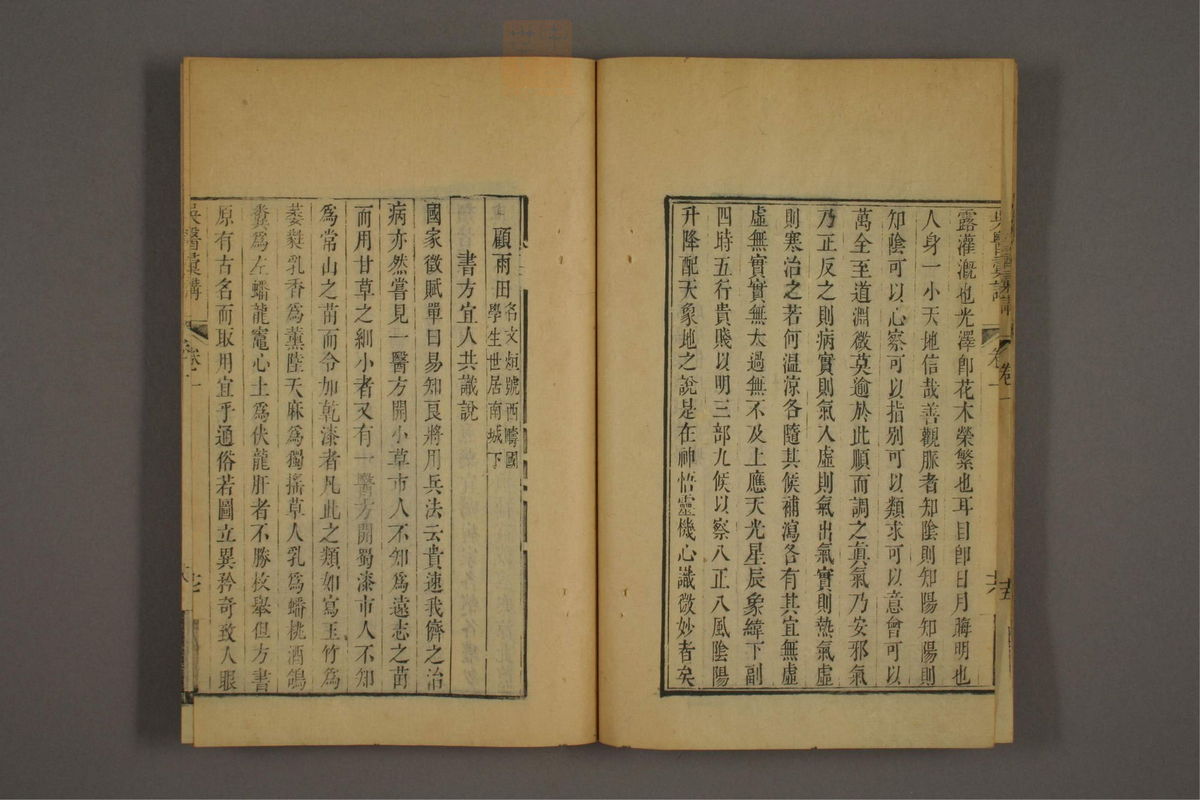 露灌漑也光澤卽花木榮繁也耳目卽日月晦明也
人身一小天地信哉善觀脈者知陰則知陽知陽則
知陰可以心察可以指別可以類求可以意會可以
萬全至道淵微莫逾於此順而調之眞氣乃安邪氣
乃正反之則病實則氣入虛則氣出氣實則熱氣虛
則寒治之若何温涼各隨其候補瀉各有其宜無虛
虛無實實無太過無不及上應天光星辰象緯下副
四時五行貴賤以明三部九候以察八正八風陰陽
升降配天象地之說是在神悟靈機心識微妙者矣
顧雨田名文烜號西疇國學生世居南城下
書方宜人共識說
國家徵賦單曰易知良將用兵法云貴速我儕之治
病亦然嘗見一醫方開小草市人不知爲遠志之苗
而用甘草之細小者又有一醫方開蜀漆市人不知
爲常山之苗而令加乾漆者凡此之類如寫玉竹爲
萎蕤乳香爲薰陸天麻爲獨搖草人乳爲蟠桃酒鴿
糞爲左蟠龍竈心土爲伏龍肝者不勝枚舉但方書
原有古名而取用宜乎通俗若圖立異矜奇致人眼
吳醫彙講
卷一